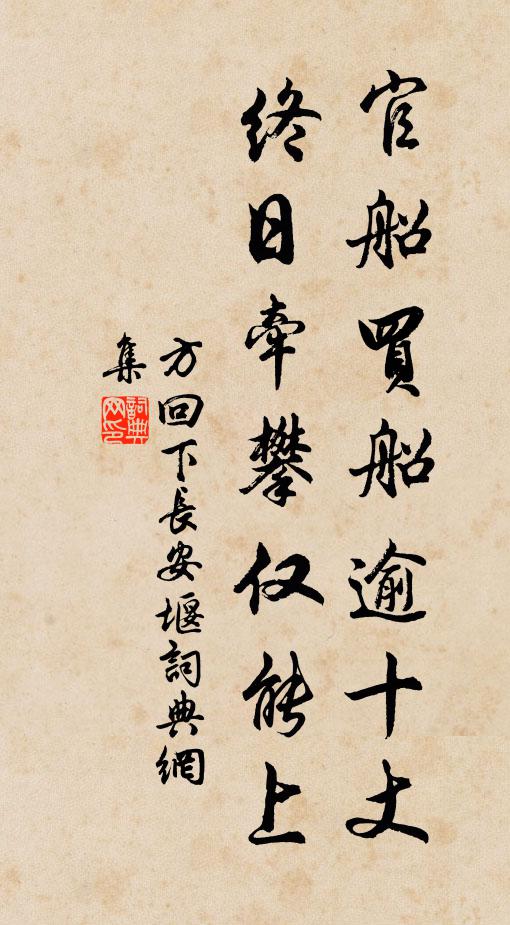 官船買船逾十丈
終日牽攀仅能上
方回下長安堰詞典網
集
詞典网印